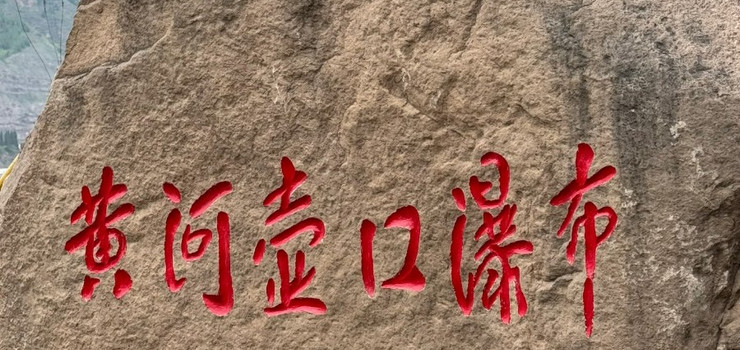 黄河壶口瀑布